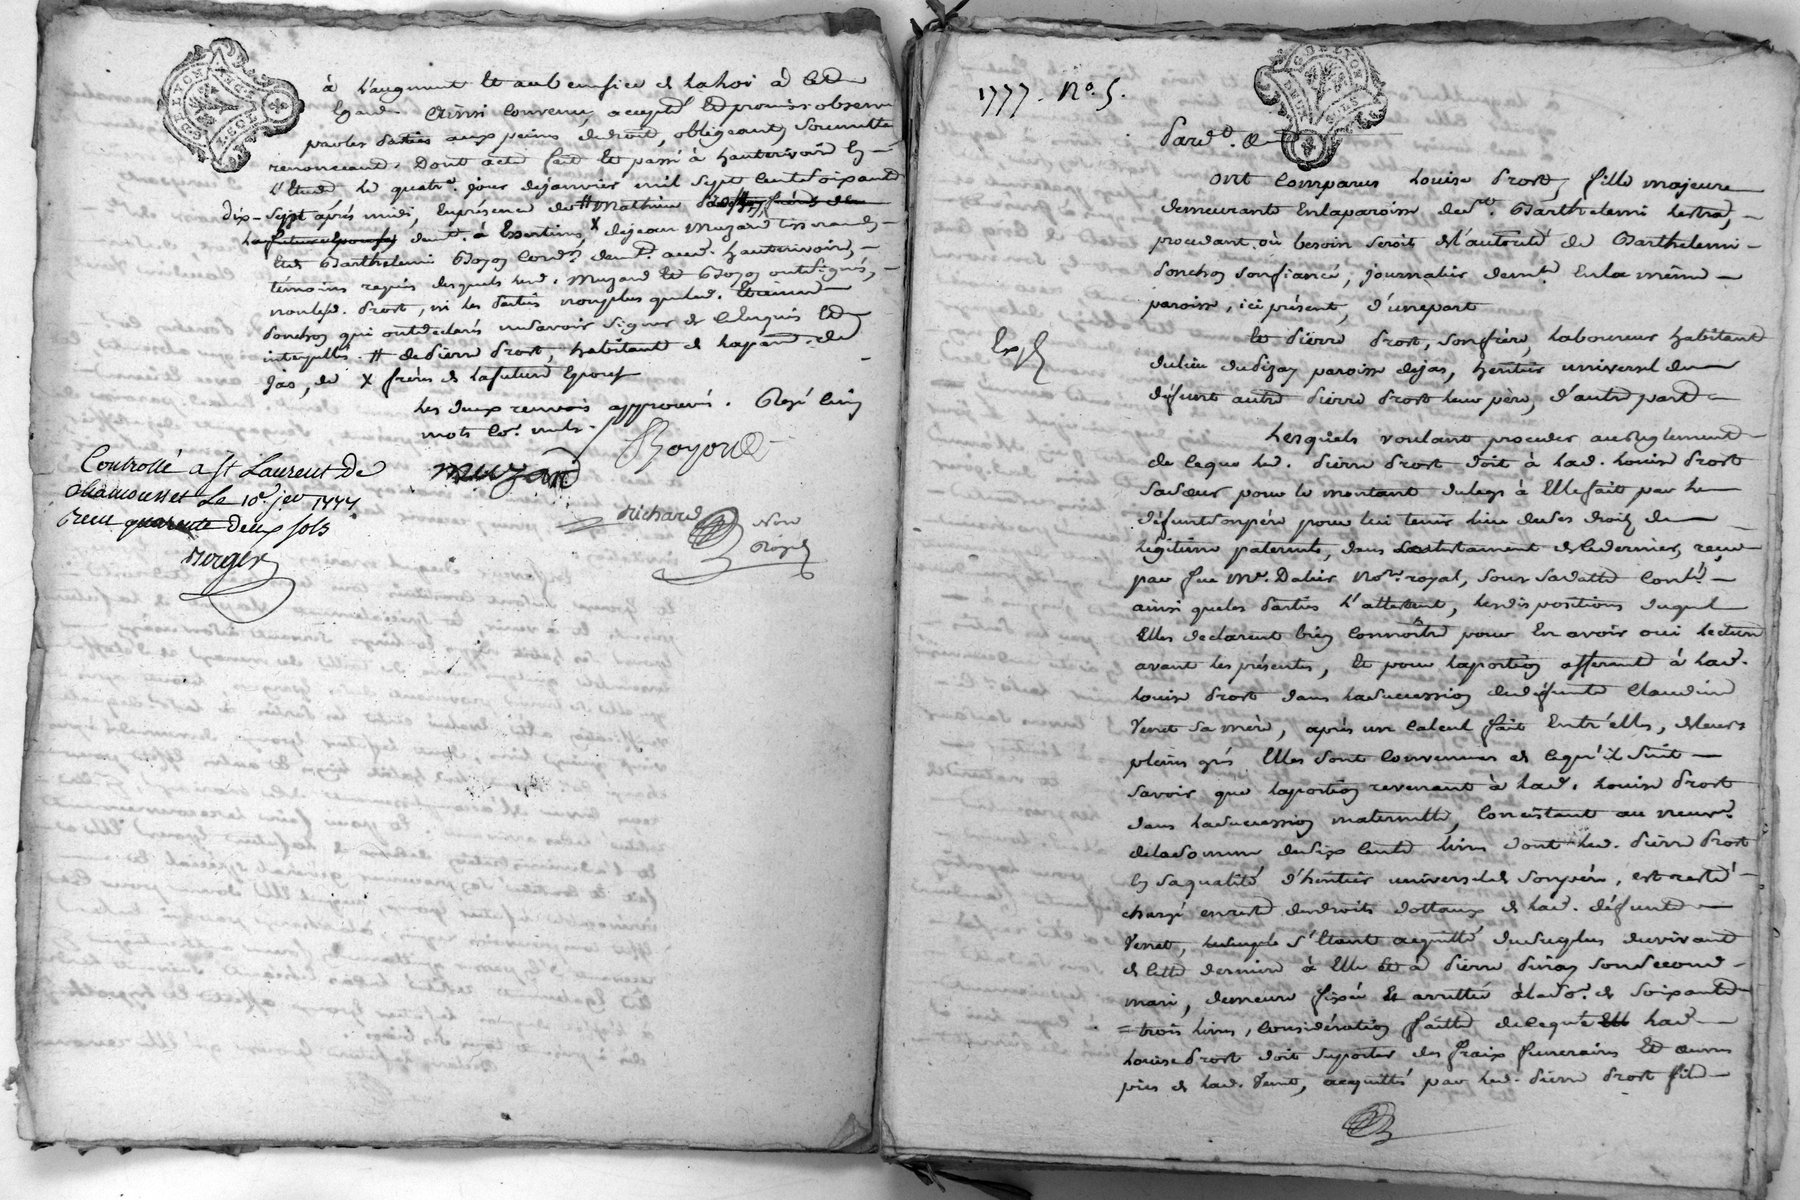 à l'augment et au benefice de la loi à cet
Egard Ainsi Convenu, accepté Et promis observer
par les parties aux peines de droit, obligeant, soumettant
renonceant. Dont acte fait Et passé à hauterivoire En
l'Etude le quatre. jour de janvier mil Sept Cent Soixante
dix-Sept après midi, En présence de # Mathieu
demt. à Essertines X de jean Muzard tisserand
Et de Barthelemi Boyon Cord.r demt. aud. hauterivoire,
témoins requis desquels led. Muzard Et Boyon ont Signés,
non led. Prost, ni les parties non plus que led.
Ponchon qui ont declarés ne savoir Signer de Ce Enquis Et
interpellés. # de Pierre Prost, habitant de la par. de
Jas, de X frères de la future Epouse
les deux renvois approuvés. Rayé cinq
mots Co.e nuls.
Boyond
Controllé a St Laurent De
muzard
chamousset Le 10e. jer 1777
Recu quarente Deux Sols
Richard
Verger
Nore
Royal
1777. No. 5.
Pard.t &
ont Comparus Louise Prost, fille majeure
demeurante En la paroisse de St. Barthelemi Lestra,
procedant où besoin Seroit de l'autorité de Barthelemi
Ponchon Son fiancé, journalier demt. En la même
paroisse, ici présent, d'une part
Exp
Et Pierre Prost, Son frère, laboureur habitant
du lieu du paroisse de jas, heritier universel de
défunt autre Pierre Prost leur père, d'autre part
Lesquels voulant proceder au Reglement
de ce que led. Pierre Prost doit à lad. Louise Prost
Sa Sœur pour le montant du legs à Elle fait par le
défunt Son père pour lui tenir lieu de Ses droits de
legitime paternels, dans le testament de Ce dernier, reçu
par feu Me. Dalier Nore. royal, Sous Sa datte Contlé.
ainsi que les Parties l'attestent, les dispositions duquel
Elles declarent bien Connoitre pour En avoir oui lecture
avant les présentes, Et pour la portion afferante à lad.
Louise Prost dans la Succession de défunte Claudine
Venet Sa mère, après un Calcul fait Entr'elles, de leurs
pleins gré Elles Sont Convenues de Ce qu'il Suit
Savoir que la portion revenant à lad. Louise Prost
dans la Succession maternelle, Consistant au
de la Somme de Six Cents livres dont led. Pierre Prost
En Sa qualité d'heritier universel de Son père, est resté
chargé en reste des droits dottaux de lad. défunte
Venet, S'Etant acquitté du Surplus du vivant
de Cette derniere à Elle Et à Pierre Son Second
mari, demeure fixée Et arrettée à la So.e de Soixante
= trois livres, Considération faitte de Ce que lad.
Louise Prost doit Suporter des fraix funeraires Et œuvres
pies de lad. Venet, acquittés par led. Pierre Prost fils